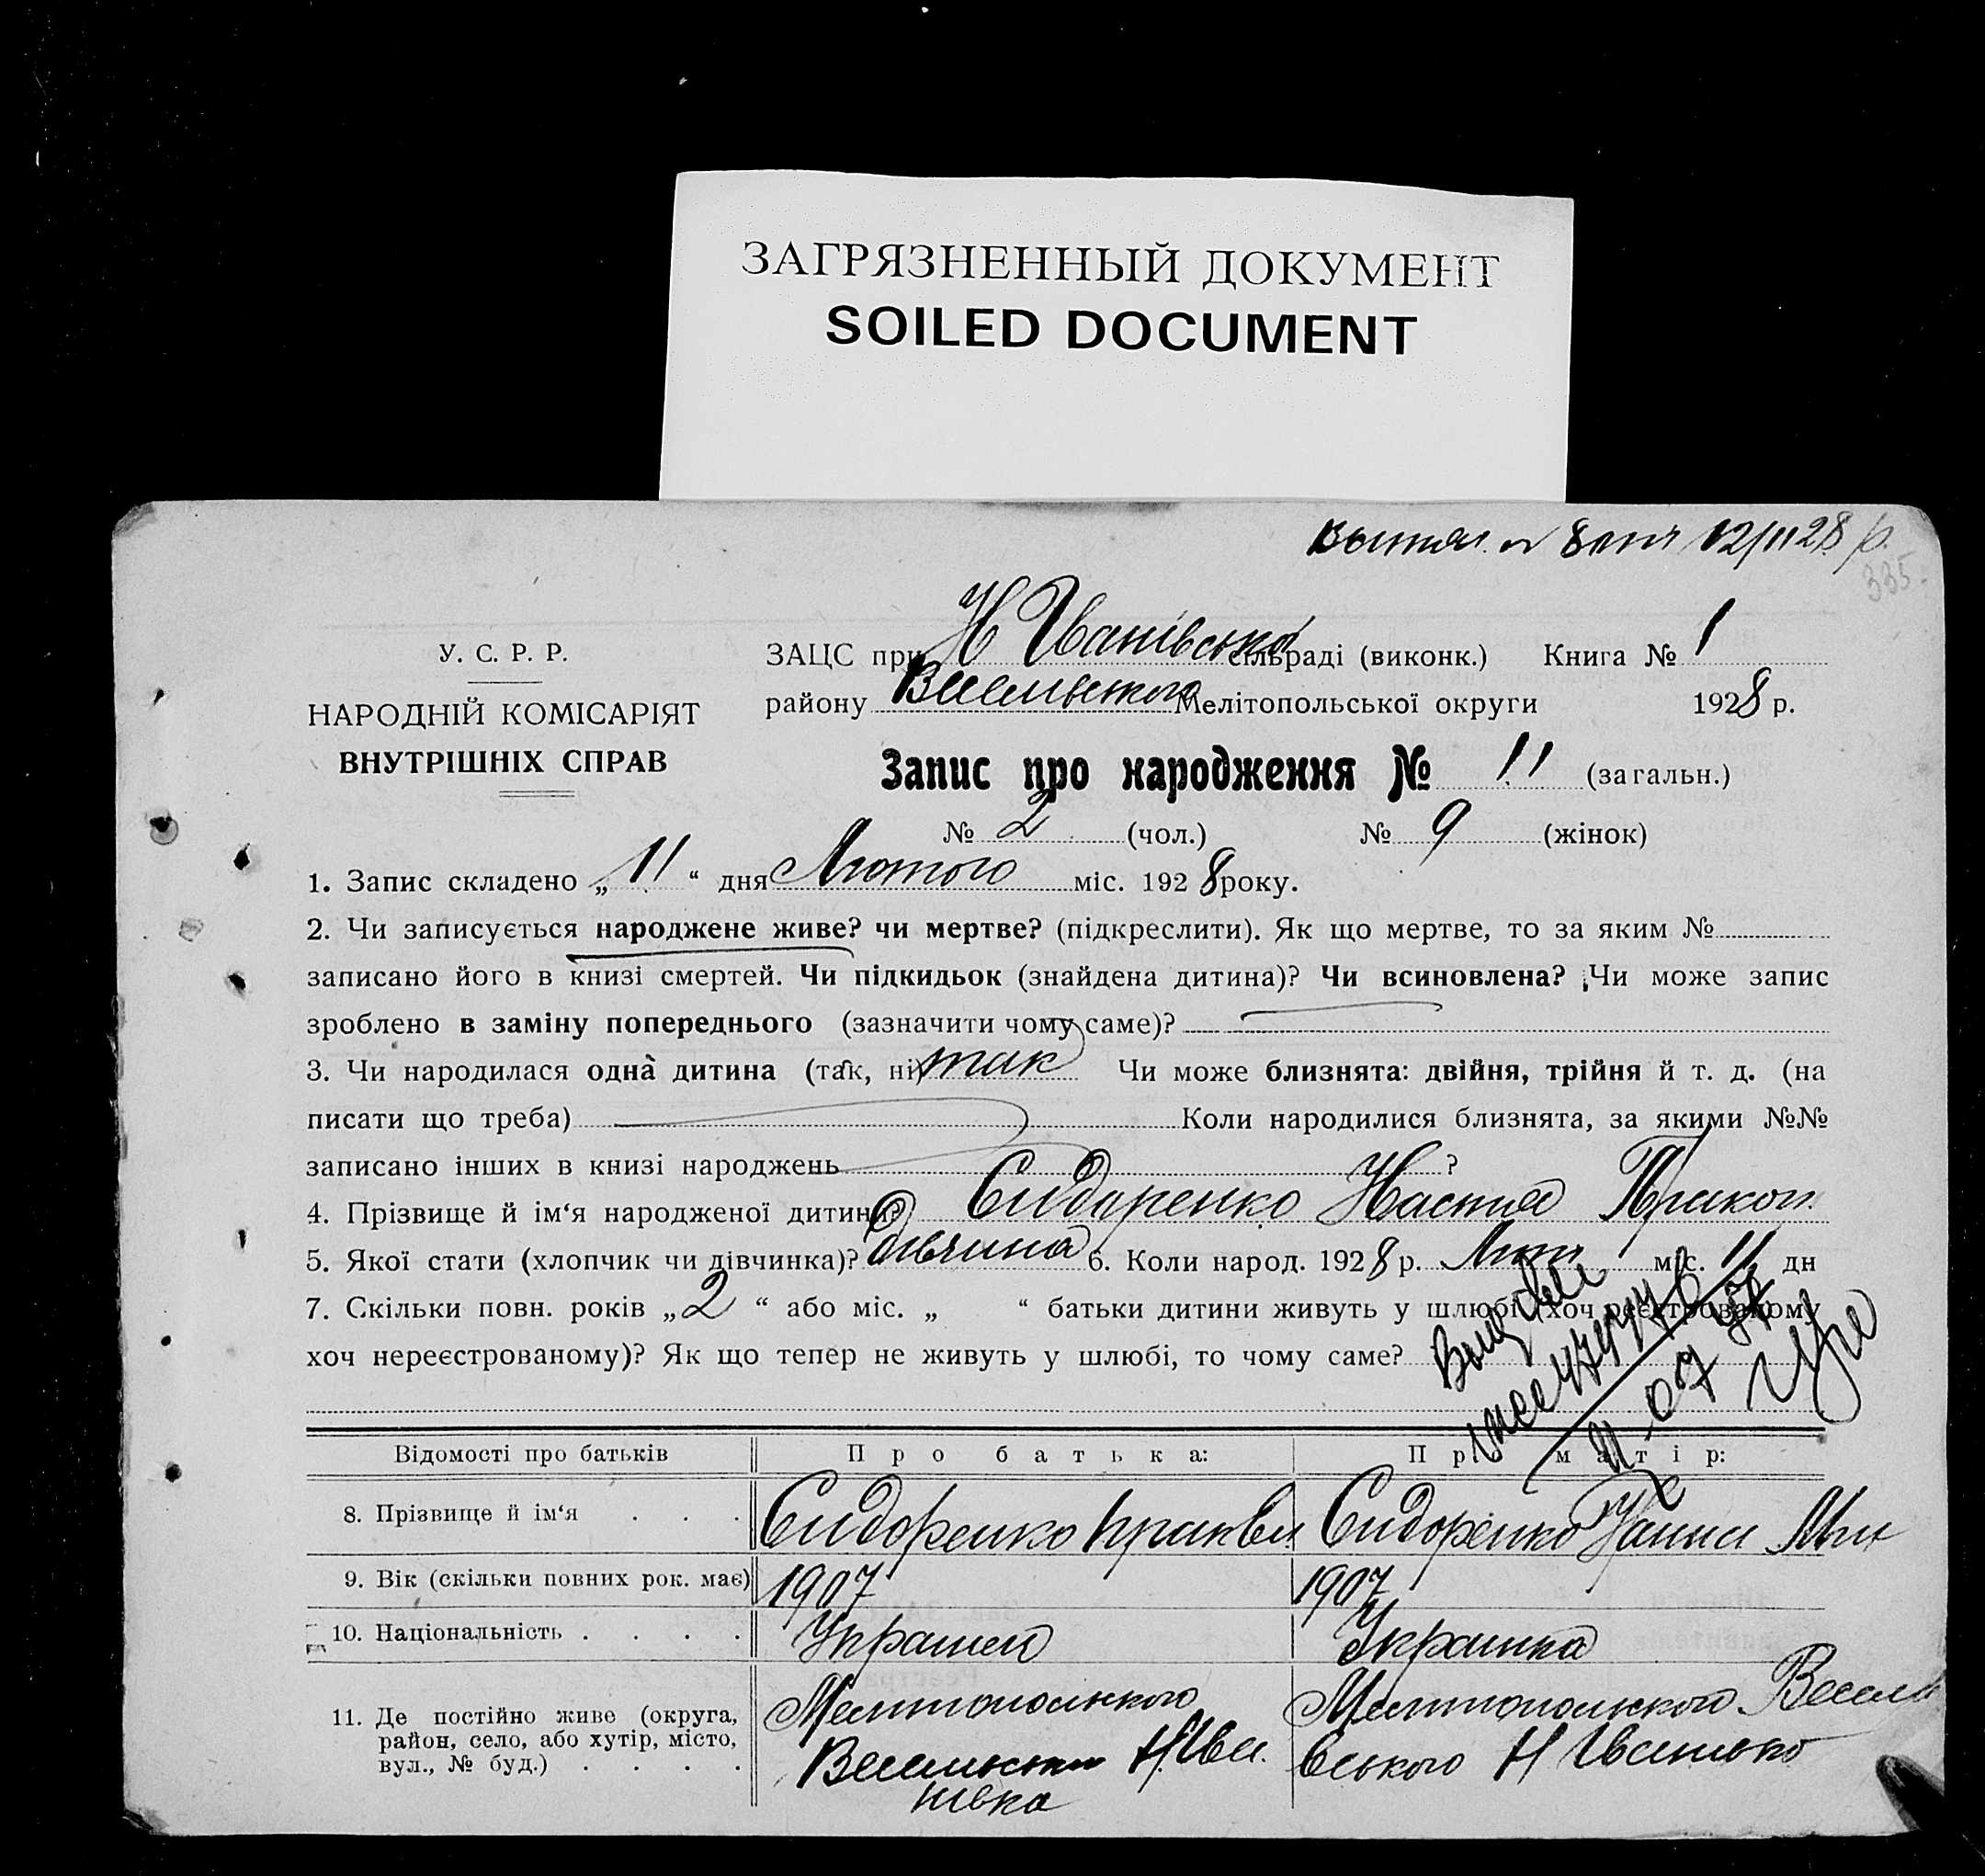 ЗАГРЯЗНЕННЫЙ ДОКУМЕНТ
SOILED DOCUMENT
12/II 28 р.
335.
У. С. Р. Р.
НАРОДНІЙ КОМІСАРІЯТ
ВНУТРІШНІХ СПРАВ
ЗАЦС при Н Іванівській сільраді (виконк.) Книга № 1
району Веселиського Мелітопольської округи 1928 р.
Запис про народження № 11 (загальн.)
№ 2 (чол.) № 9 (жінок)
1. Запис складено „11“ дня Лютого міс. 1928 року.
2. Чи записується народжене живе? чи мертве? (підкреслити). Як що мертве, то за яким №
записано його в книзі смертей. Чи підкидьок (знайдена дитина)? Чи всиновлена? Чи може запис
зроблено в заміну попереднього (зазначити чому саме)?
3. Чи народилася одна дитина (так, ні) так Чи може близнята: двійня, трійня й т. д. (на
писати що треба) Коли народилися близнята, за якими №№
записано інших в книзі народжень ?
4. Прізвище й ім‘я народженої дитини? Сидоренко Настя Прокоп.
5. Якої стати (хлопчик чи дівчинка)? дівчина 6. Коли народ. 1928 р. Лют міс. 11 дн
7. Скільки повн. років „2“ або міс. „ “ батьки дитини живуть у шлюбі (хоч реєстрованому
хоч нереєстрованому)? Як що тепер не живуть у шлюбі, то чому саме?
Відомості про батьків Про батька: Про матір:
8. Прізвище й ім‘я . . . Сидоренко Сидоренко Ганна
9. Вік (скільки повних рок. має) 1907 1907
10. Національність . . . . Українец Українка
11. Де постійно живе (округа, Мелітопольского Мелітопольского Весели
район, село, або хутір, місто, Н Іва вського Н
вул., № буд.) . . . .
нівка